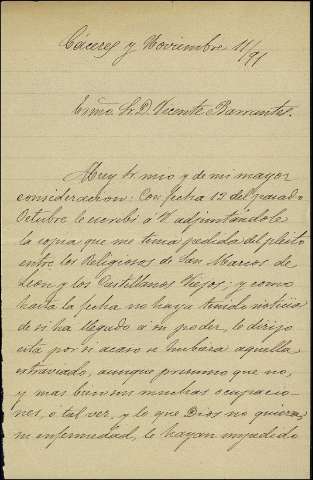 Cáceres y Noviembre 11/91
Exmo. Sr. D. Vicente Barrantes.
Muy Sr. mio y de mi mayor
consideracion: Con fecha 12 del pasado
Octubre le escribí a V. adjuntándole
la copia que me tenia pedida del pleito
entre los Religiosos de San Marcos de
Leon y los Castellanos Viejos; y como
hasta la fecha no haya tenido noticia
de si ha llegado a su poder, le dirijo
esta por si acaso se hubiera aquella
extraviado, aunque presumo que no,
y mas bien sus muchas ocupacio-
nes, ó tal vez, y lo que Dios no quiera,
ni enfermedad, le hayan impedido